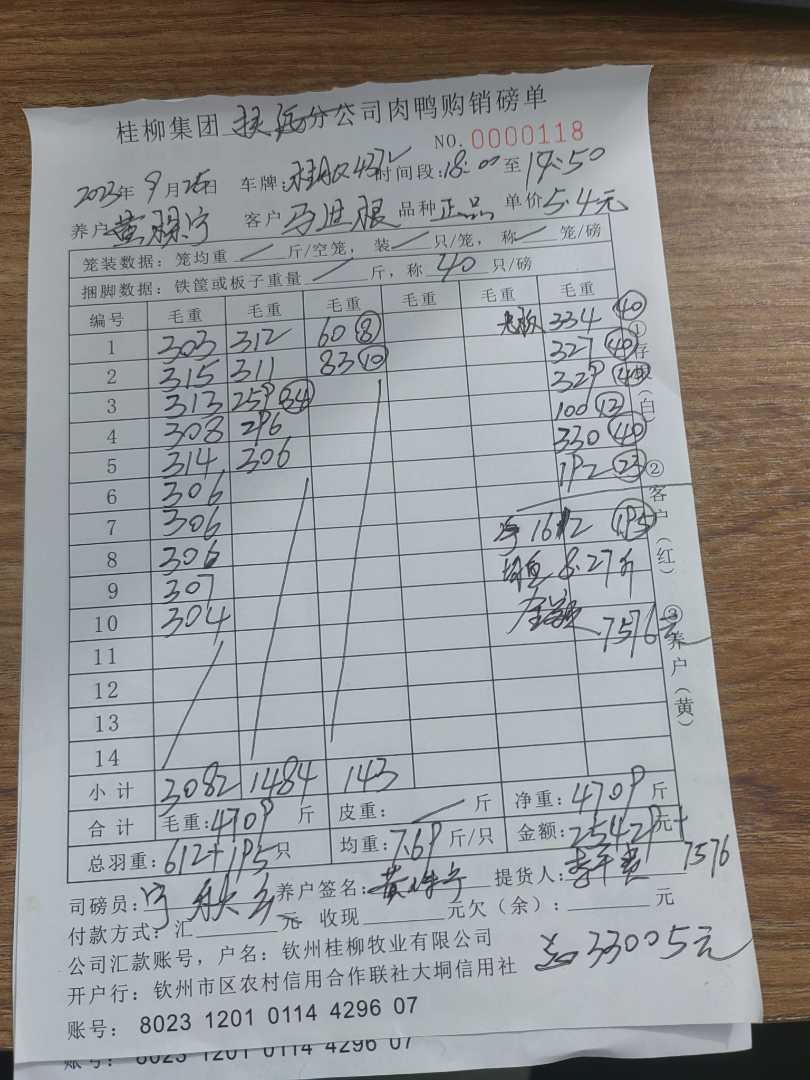 桂柳集团 扶绥分公司肉鸭购销磅单
NO. 0000118
2023年 9月25日 车牌: 时间段:18:00至19:50
养户 客户 马进根 品种 正品 单价 5.4元
笼装数据: 笼均重 / 斤/空笼, 装 / 只/笼, 称 / 笼/磅
捆脚数据: 铁筐或板子重量 / 斤, 称 40 只/磅
编号 毛重 毛重 毛重 毛重 毛重 毛重
1 303 312 60 ⑧ 334 ㊵
2 315 311 83 ⑩ 327 ㊵
3 313 259 ㉞ 329 ㊵
4 308 296 100 ⑫
5 314 306 330 ㊵
6 306 192 ㉓
7 306 1612 (195)
8 306 均重 8.27斤
9 307 金额
10 304 7576元
11
12
13
14
小计 3082 1484 143
合计 毛重:4709 斤 皮重: / 斤 净重:4709 斤
总羽重: 612+195 只 均重: 7.69 斤/只 金额: 25429元+
7576
司磅员: 养户签名: 提货人:
付款方式: 汇 元 收现 元欠(余): 元
总33005元
公司汇款账号, 户名: 钦州桂柳牧业有限公司
开户行: 钦州市区农村信用合作联社大垌信用社
账号: 8023 1201 0114 4296 07
账号: 8023 1201 0114 4296 07
①存根(白)
②客户(红)
③养户(黄)